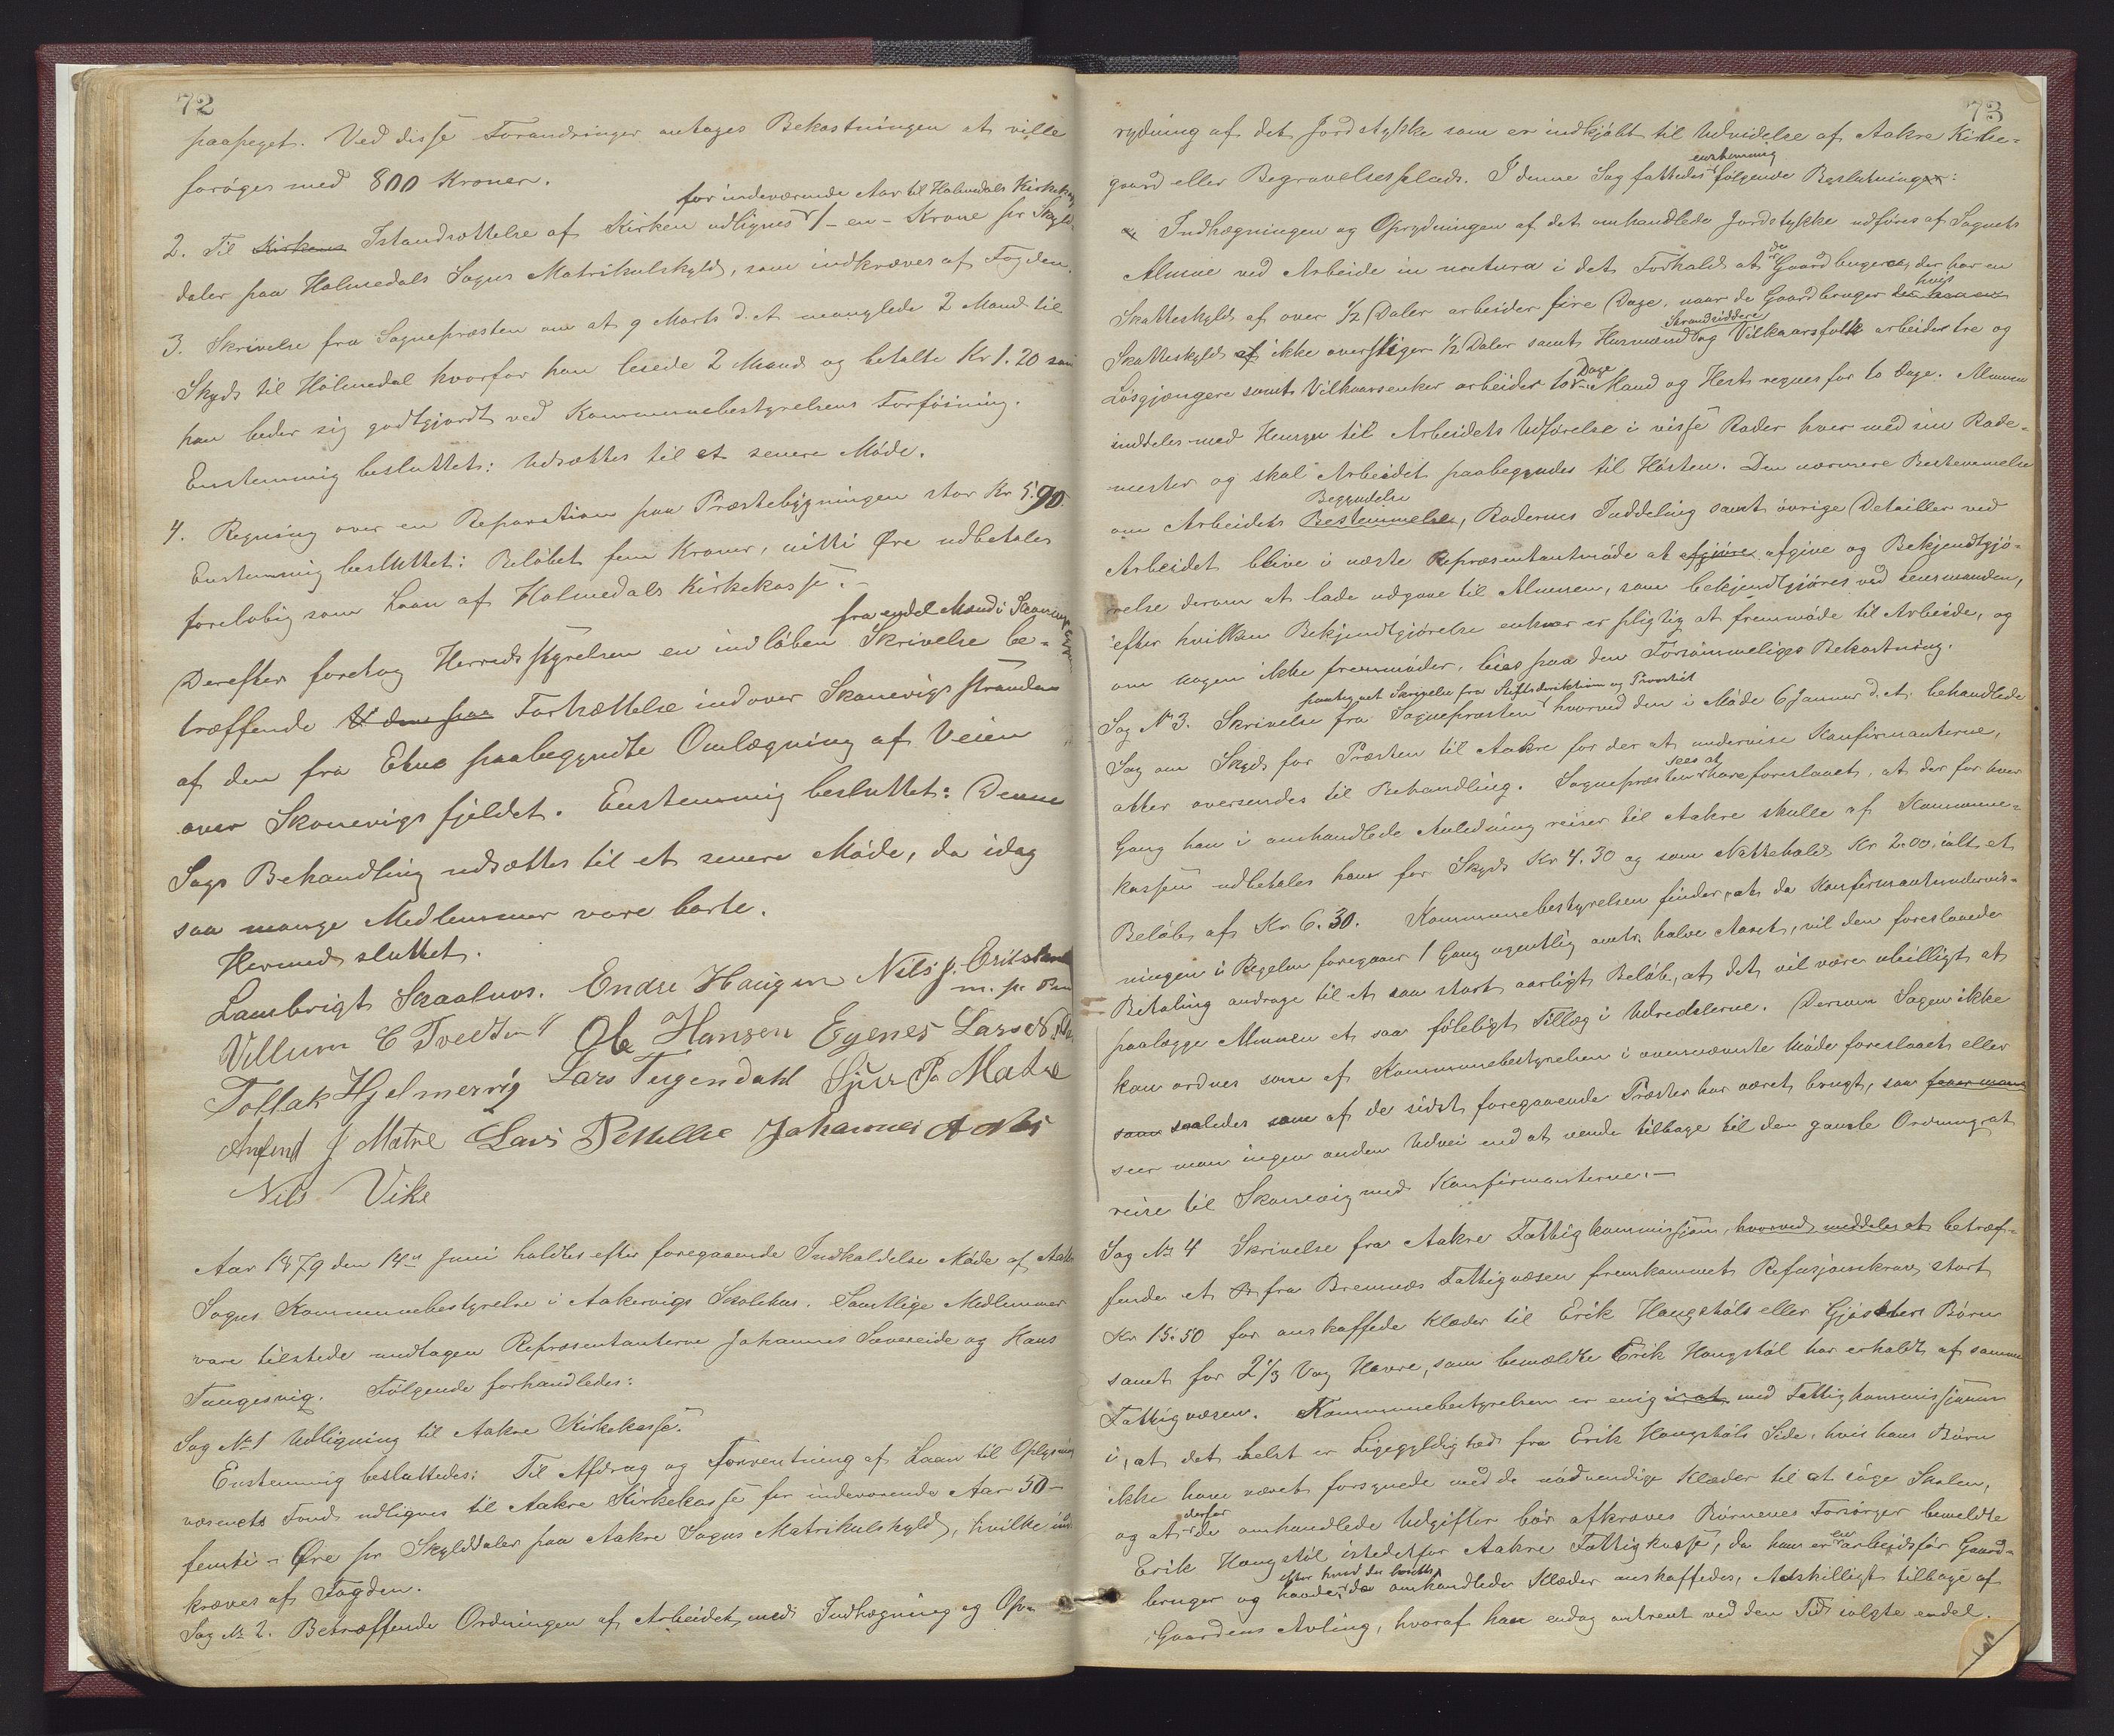 72
paapeget. Ved disse Forandringer antages Bekostningen at ville
forøges med 800 Kroner.
for indeværende Aar til Holmedals Kirkekasse
2. Til Kirkens Istandsættelse af Kirken udlignes 1 - en - Krone pr Skyld-
daler paa Holmedals Sogns Matrikulskyld, som indkræves af Fogden.
3. Skrivelse fra Sognepræsten om at 9 Marts d. A. manglede 2 Mand til
Skyds til Holmedal hvorfor han leiede 2 Mand og betalte Kr 1.20 som
han beder sig godtgjordt ved Kommunebestyrelsens Forføining.
Enstemmig besluttet: Udsættes til et senere Møde.
4. Regning over en Reparation paa Præstebygningen stor Kr 5.90.
Enstemmig besluttet: Beløbet fem Kroner, nitti Øre udbetales
foreløbig som Laan af Holmedals Kirkekasse.-
fra endel Mænd i Skonevig
Derefter foretog Herredsstyrelsen en indløben Skrivelse be-
træffende Fortsættelse indover Skonevigsstranden
af den fra Etne paabegyndte Omlægning af Veien
over Skonevigsfjeldet. Enstemmig besluttet: Denne
Sags Behandling udsættes til et senere Møde, da idag
saa mange Medlemmer vare borte.
Hermed sluttet.
Lambrigt Skaalnes. Endre Haugen Nils J. Eriks
m. p. Pen
Villum E Tvedten Ole Hansen Egenes Lars N.
Tollak Hjelmervig Lars Teigendahl Sjur P. Matre
Anfind J Matre Lars Pettellse Johannes A Næs
Nils Vike
Aar 1879 den 14de Juni holdtes efter foregaaende Indkaldelse Møde af Aakre
Sogns Kommunebestyrelse i Aakrevigs Skolehus. Samtlige Medlemmer
vare tilstede undtagen Repræsentanterne Johannes Sævereide og Hans
Tungesvig. Følgende forhandledes:
Sag No 1 Udligning til Aakre Kirkekasse.
Enstemmig besluttedes: Til Afdrag og Forrentning af Laan til Oplysnings
væsenets Fond udlignes til Aakre Kirkekasse for indeværende Aar 50 -
femti - Øre pr Skylddaler paa Aakre Sogns Matrikulskyld, hvilke ind
kræves af Fogden.
Sag No 2. Betræffende Ordningen af Arbeidet med Indhegning og Op-
73
rydning af det Jordstykke som er indkjøbt til Udvidelse af Aakre Kirke-
enstemmig
gaard eller Begravelsesplads. I denne Sag fattedes følgende Beslutninger:
a, Indhegningen og Oprydningen af det omhandlede Jordstykke udføres af Sognets
de
Almue ved Arbeide in natura i det Forhold at Gaardbrugere, der har en
hvis
Skatteskyld af over 1/2 Daler arbeider fire Dage, naar de Gaardbruger der haver
Strandsiddere
Skatteskyld af ikke overstiger 1/2 Daler samt Husmænd og Vilkaarsfolk arbeider tre og
Dage
Løsgjængere samt Vilkaarsenker arbeider to - Mand og Hest regnes for to Dage. Almuen
inddeles med Hensyn til Arbeidets Udførelse i visse Roder hver med sin Rode-
mester og skal Arbeidet paabegyndes til Høsten. Den nærmere Bestemmelse
Begyndelse
om Arbeidets Bestemmelse, Rodernes Inddeling samt øvrige Detailler ved
Arbeidet blive i næste Repræsentantmøde at afgjøre afgive og Bekjendtgjø-
relse derom at lade udgaae til Almuen, som bekjendtgjøres ved Lensmanden,
efter hvilken Bekjendtgjørelse enhver er pligtig at fremmøde til Arbeide, og
om nogen ikke fremmøder, leies paa den Forsømmeliges Bekostning.
paategnet Skrivelse fra Stiftsdirektion og Provstiet
Sag No 3. Skrivelse fra Sognepræsten hvorved den i Møde 6 Januar d. A. behandlede
Sag om Skyds for Præsten til Aakre for der at undervise Konfirmanterne,
sees at
atter oversendes til Behandling. Sognepræsten have foreslaaet, at der for hver
Gang han i omhandlede Anledning reiser til Aakre skulle af Kommune-
kassen udbetales ham for Skyds Kr 4.30 og som Nattehold Kr 2.00, ialt et
Beløb af Kr 6.30. Kommunebestyrelsen finder, at da Konfirmantundervis-
ningen i Regelen foregaaer 1 Gang ugentlig omtr. halve Aaret, vil den foreslaaede
Betaling andrage til et saa stort aarligt Beløb, at det vil være ubilligt at
paalægge Almuen et saa føleligt Tillæg i Udredslerne. Dersom Sagen ikke
kan ordnes som af Kommunebestyrelsen i ovennævnte Møde foreslaaet eller
som saaledes som af de sidst foregaaende Præster har været brugt, saa
seer man ingen anden Udvei end at vende tilbage til den gamle Ordning at
reise til Skonevig med Konfirmanterne.-
Sag No 4 Skrivelse fra Aakre Fattigkommissjon, hvorved meddeles at betræf-
fende et fra Bremnes Fattigvæsen fremkommet Refusjonskrav, stort
Kr 15.50 for anskaffede Klæder til Erik Haugstøls eller Gjøsteins Børn
samt for 2 1/3 Vog Havre, som bemeldte Erik Haugstøl har erholdt af samme
Fattigvæsen. Kommunebestyrelsen er enig i at med Fattigkommissjonen
i, at det helst er Ligegyldighed fra Erik Haugstøls Side, hvis hans Børn
ikke have været forsynede med de nødvendige Klæder til at søge Skolen,
derfor
og at de omhandlede Udgifter bør afkræves Børnenes Forsørger bemeldte
en
Erik Haugstøl istedetfor Aakre Fattigkasse, da han er arbeidsfør Gaard-
efter hvad der berettes
bruger og havde, da omhandlede Klæder anskaffedes, Adskilligt tilbage af
Gaardens Avling, hvoraf han endog omtrent ved den Tid solgte endel.